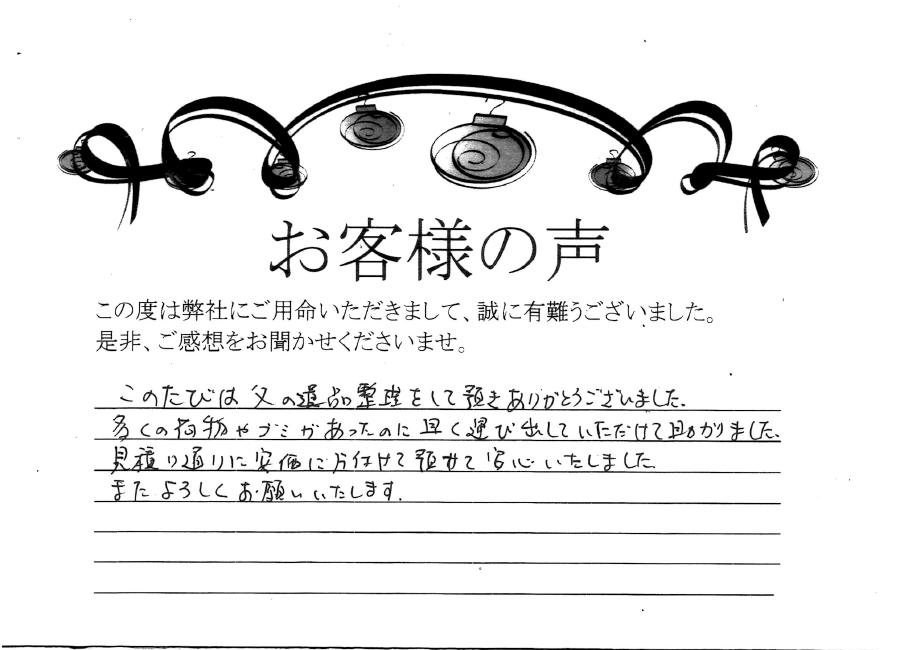 お客様の声
この度は弊社にご用命いただきまして、誠に有難うございました。
是非、ご感想をお聞かせくださいませ。
このたびは父の遺品整理をして頂きありがとうございました。
多くの荷物やゴミがあったのに早く運び出していただけて助かりました。
見積り通りに安価に片付けて頂けて安心いたしました。
またよろしくお願いいたします。